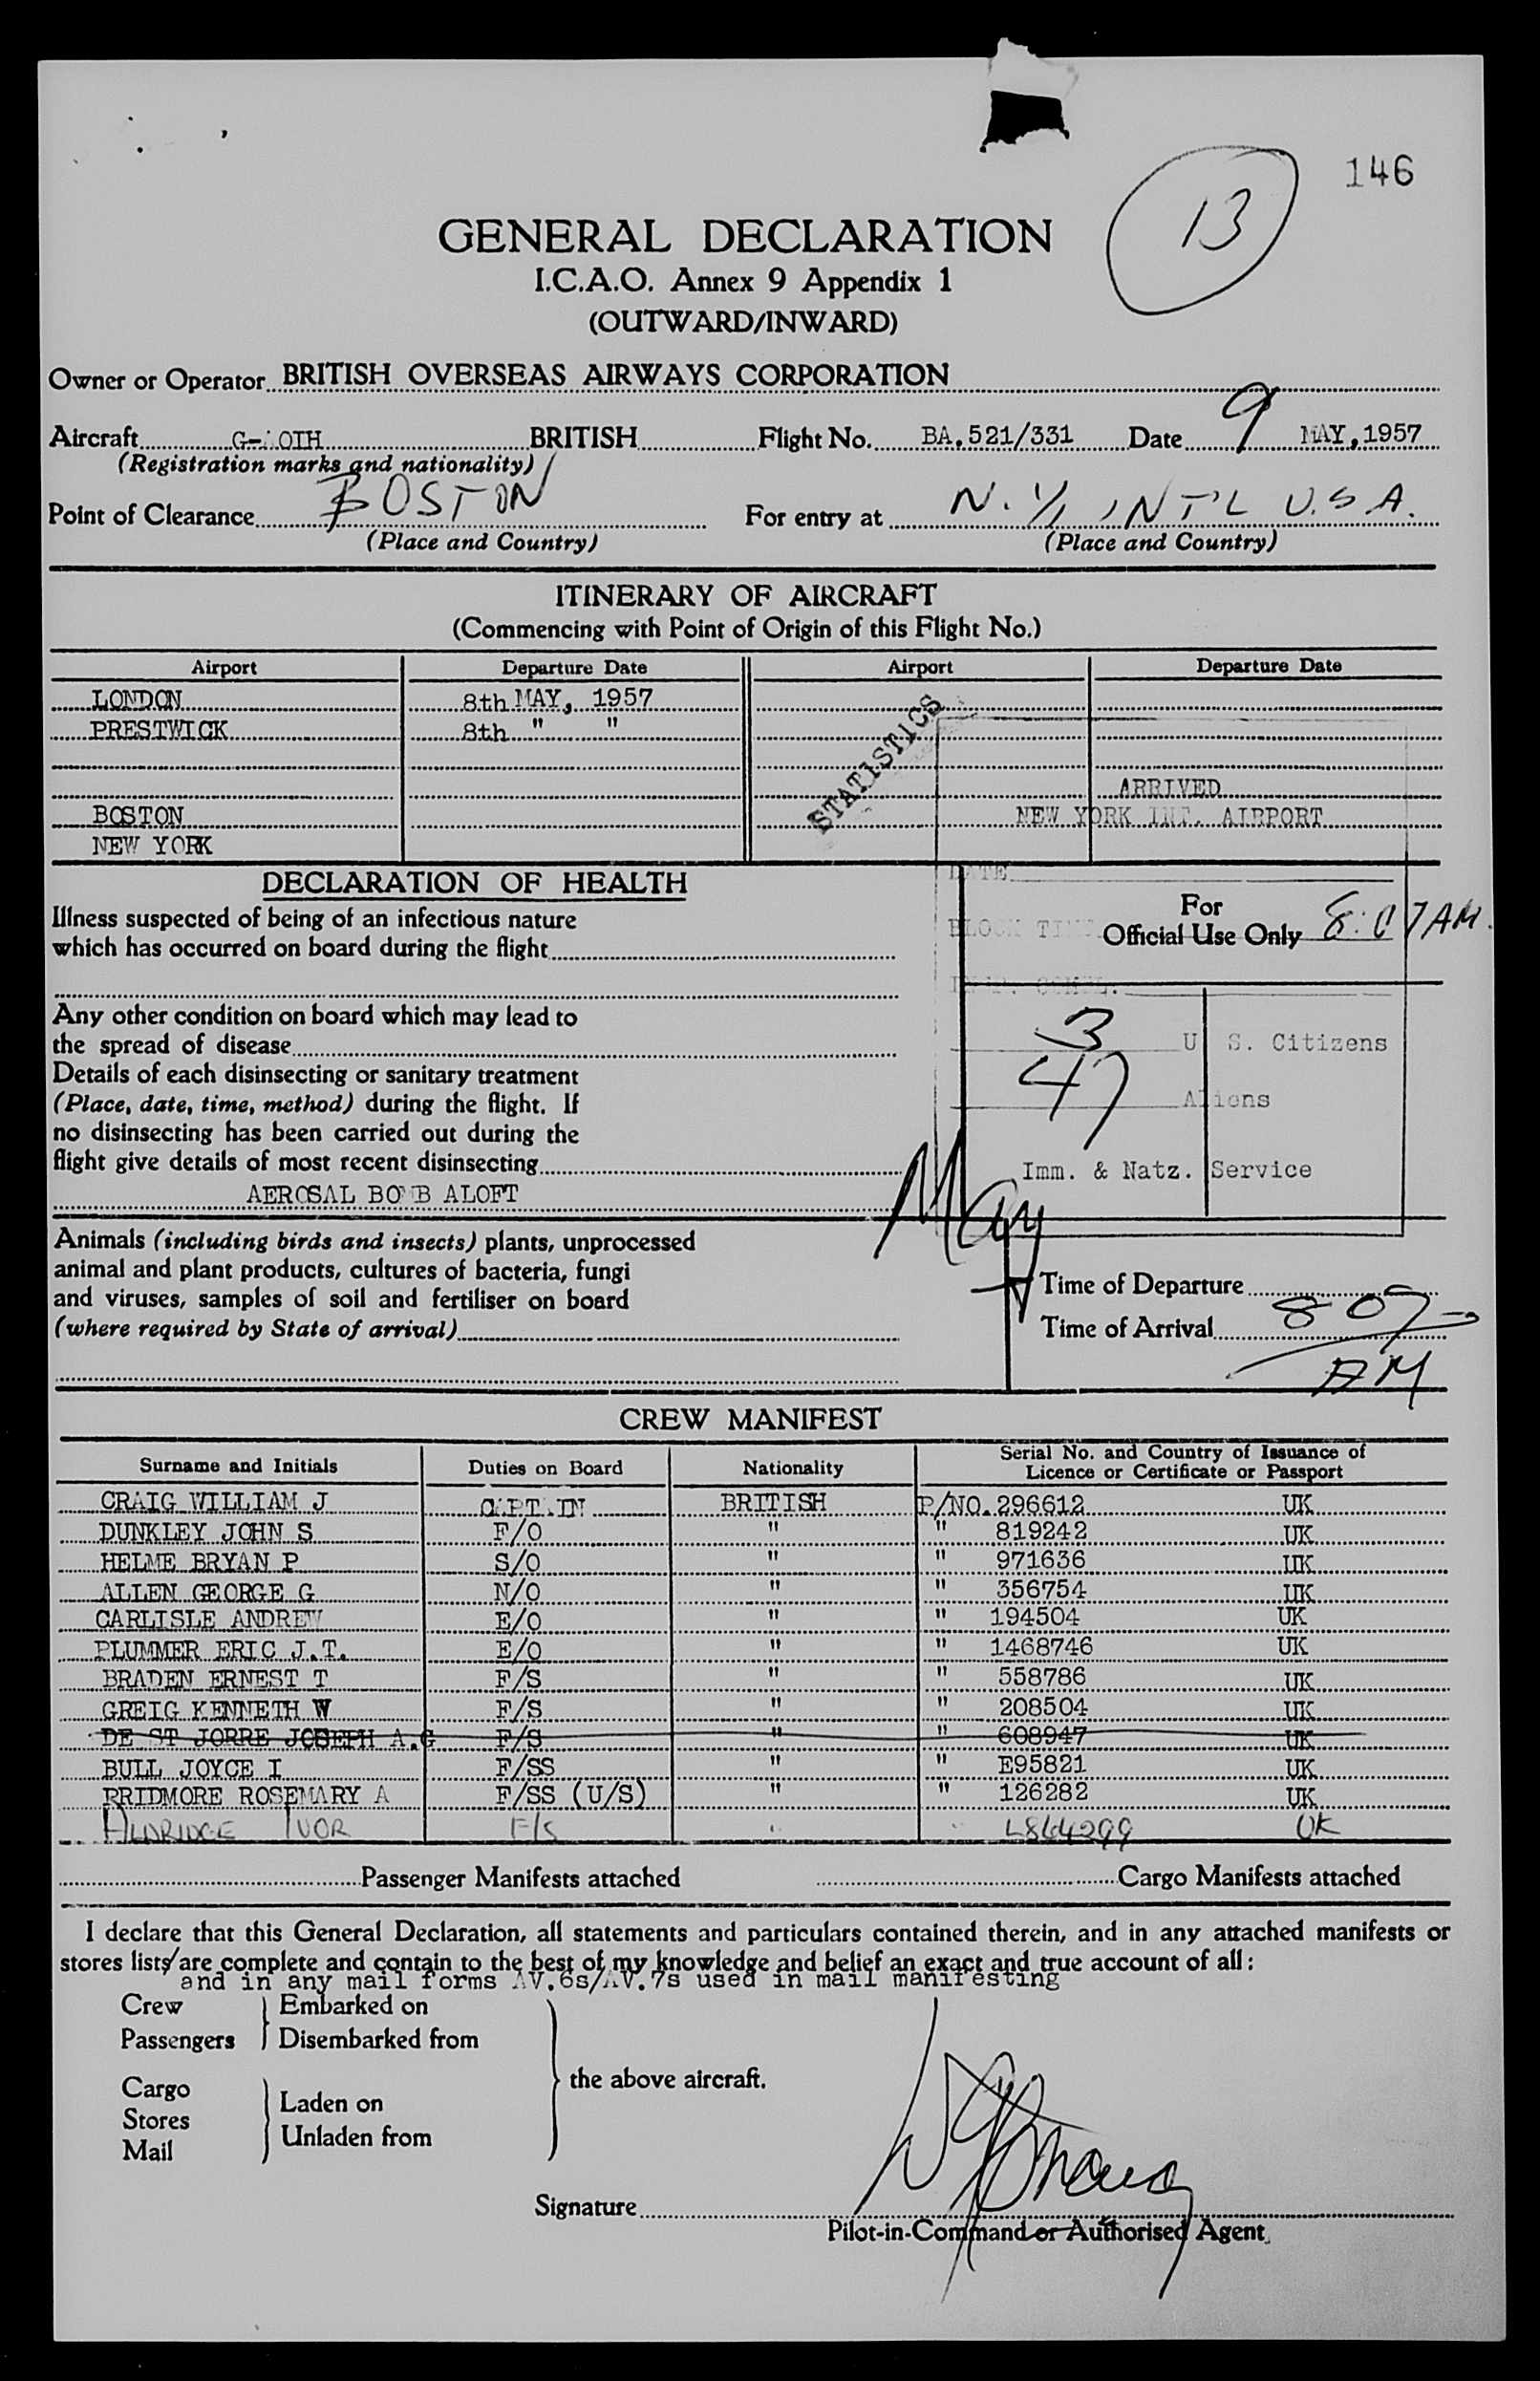 146
13
GENERAL DECLARATION
I.C.A.O. Annex 9 Appendix 1
(OUTWARD/INWARD)
Owner or Operator BRITISH OVERSEAS AIRWAYS CORPORATION
Aircraft G- OIH BRITISH Flight No. BA.521/331 Date 9 MAY,1957
(Registration marks and nationality)
Point of Clearance BOSTON For entry at N.Y. INT'L U.S.A.
(Place and Country) (Place and Country)
ITINERARY OF AIRCRAFT
(Commencing with Point of Origin of this Flight No.)
Airport Departure Date Airport Departure Date
LONDON 8th MAY, 1957
PRESTWICK 8th " "
STATISTICS
ARRIVED
BOSTON NEW YORK INT. AIRPORT
NEW YORK
DECLARATION OF HEALTH DATE
Illness suspected of being of an infectious nature For
which has occurred on board during the flight BLOCK TIME Official Use Only 8:07AM.
Any other condition on board which may lead to
the spread of disease 3 U S. Citizens
Details of each disinsecting or sanitary treatment
(Place, date, time, method) during the flight. If 47 Aliens
no disinsecting has been carried out during the
flight give details of most recent disinsecting Imm. & Natz. Service
AEROSAL BOMB ALOFT
May
Animals (including birds and insects) plants, unprocessed
animal and plant products, cultures of bacteria, fungi
and viruses, samples of soil and fertiliser on board Time of Departure
(where required by State of arrival) Time of Arrival 807
AM
CREW MANIFEST
Surname and Initials Duties on Board Nationality Serial No. and Country of Issuance of
Licence or Certificate or Passport
CRAIG WILLIAM J CAPTAIN BRITISH P/NO.296612 UK
DUNKLEY JOHN S F/O " " 819242 UK
HELME BRYAN P S/O " " 971636 UK
ALLEN GEORGE G N/O " " 356754 UK
CARLISLE ANDREW E/O " " 194504 UK
PLUMMER ERIC J.T. E/O " " 1468746 UK
BRADEN ERNEST T F/S " " 558786 UK
GREIG KENNETH W F/S " " 208504 UK
DE ST JORRE JOSEPH A.G F/S " " 608947 UK
BULL JOYCE I F/SS " " E95821 UK
PRIDMORE ROSEMARY A F/SS (U/S) " " 126282 UK
ALDRIDGE IVOR F/S " " L864299 UK
Passenger Manifests attached Cargo Manifests attached
I declare that this General Declaration, all statements and particulars contained therein, and in any attached manifests or
stores lists/are complete and contain to the best of my knowledge and belief an exact and true account of all:
and in any mail forms AV.6s/AV.7s used in mail manifesting
Crew Embarked on
Passengers Disembarked from
the above aircraft.
Cargo
Stores Laden on
Mail Unladen from
Signature
Pilot-in-Command or Authorised Agent